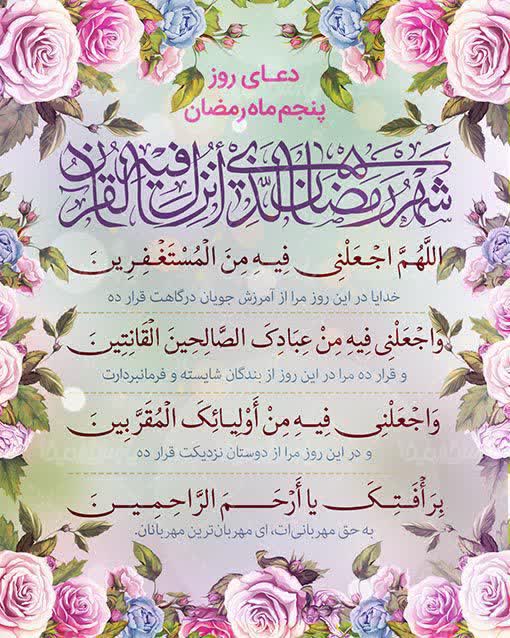 دعـای روز
پنجم ماه رمضان
شَهْرُ رَمَضَانَ الَّذِي أُنْزِلَ فِيهِ الْقُرْآنُ
اللَّهُمَّ اجْعَلْنِی فِيهِ مِنَ الْمُسْتَغْفِرِينَ
خدایا در این روز مرا از آمرزش جویان درگاهت قرار ده
وَاجْعَلْنِی فِيهِ مِنْ عِبَادِکَ الصَّالِحِينَ الْقَانِتِينَ
و قرار ده مرا در این روز از بندگان شایسته و فرمانبردارت
وَاجْعَلْنِی فِيهِ مِنْ أَوْلِيائِکَ الْمُقَرَّبِينَ
و در این روز مرا از دوستان نزدیکت قرار ده
بِرَأْفَتِکَ يا أَرْحَمَ الرَّاحِمِينَ
به حق مهربانی‌ات، ای مهربان‌ترین مهربانان.